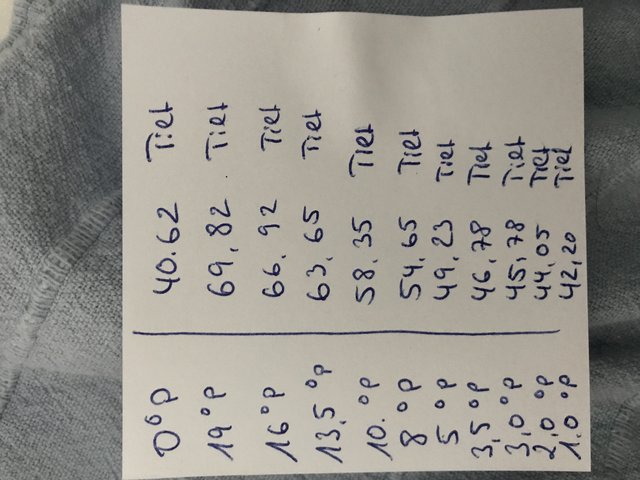 0°p 40.62 Tiet
19°p 69,82 Tiet
16°p 66.92 Tiet
13,5°p 63,65 Tiet
10.°p 58.35 Tiet
8°p 54,65 Tiet
5°p 49,23 Tiet
3,5°p 46,78 Tiet
3,0°p 45,78 Tiet
2,0°p 44,05 Tiet
1.0°p 42,20 Tiet